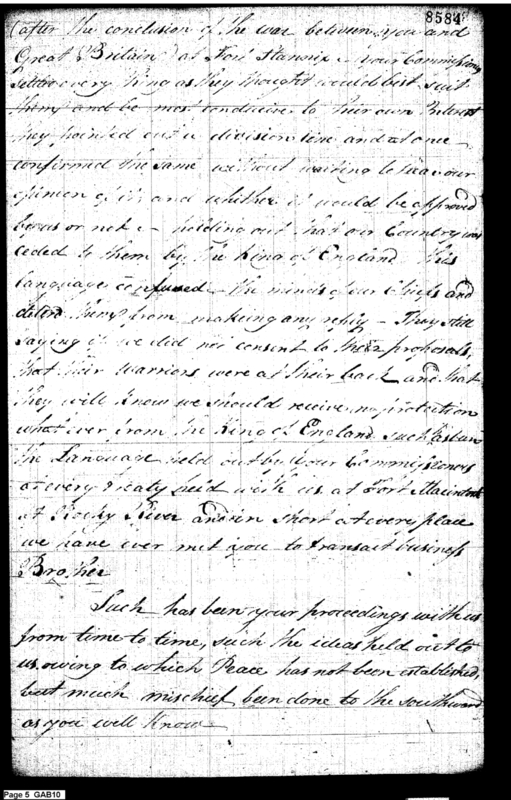 8584
(after the conclusion of the war between you and
Great Britain) at Fort Stanwix - your Commissioners
Settled every thing as they thought would best suit
them and be most conducive to their own Interest
they pointed out a division line and at once -
confirmed the same without waiting to hear our
opinion of it and whether it would be approved
by us or not - holding out that our Country was
ceded to them by the King of England this
language confused the minds of our Chiefs and
deterd them from makeing any reply - They still
saying if we did not consent to their proposals,
that their warriors were at their back and that
they will know we should receive no protection
what ever from the King of England such has been
the Language held out by your Commissioners
at every Treaty held with us at Fort Macintosh
at Rocky River and in short at every place
we have ever met you to transact business
Brother
Such has been your proceedings with us
from time to time, such the ideas held out to
us owing to which Peace has not been established,
but much mischief been done to the southward
as you well know
Page 5 GAB10